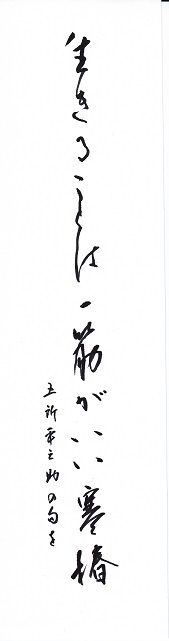 生きることは一筋がいい寒椿
五所平之助の句を